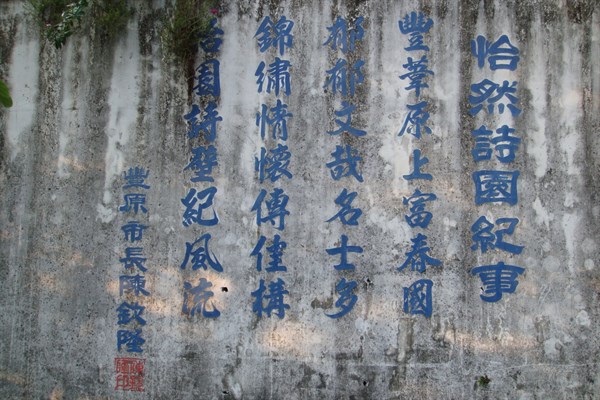 怡然詩園紀事
豐葦原上富春國
郁郁文哉名士多
錦繡情懷傳佳構
怡園詩壁紀風流
豐原市長陳欽隆